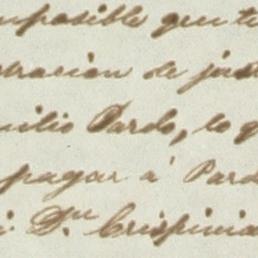 mposible que te
stracion de just
uilio Pardo, lo q
pagar á Pard
i. Dn Crispinia